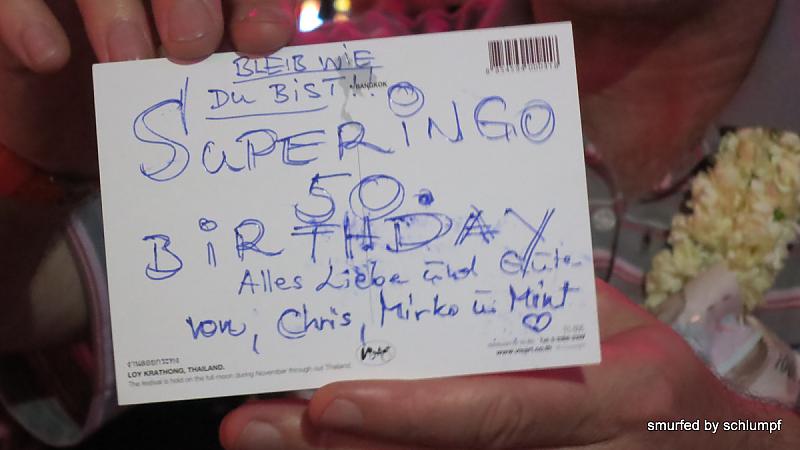 BLEIB WIE
DU BIST!!
BANGKOK
SUPERINGO
50.
BIRTHDAY
Alles Liebe und Gute
von, Chris, Mirko u. Mint
LOY KRATHONG, THAILAND.
The festival is hold on the full moon during November through out Thailand.
smurfed by schlumpf